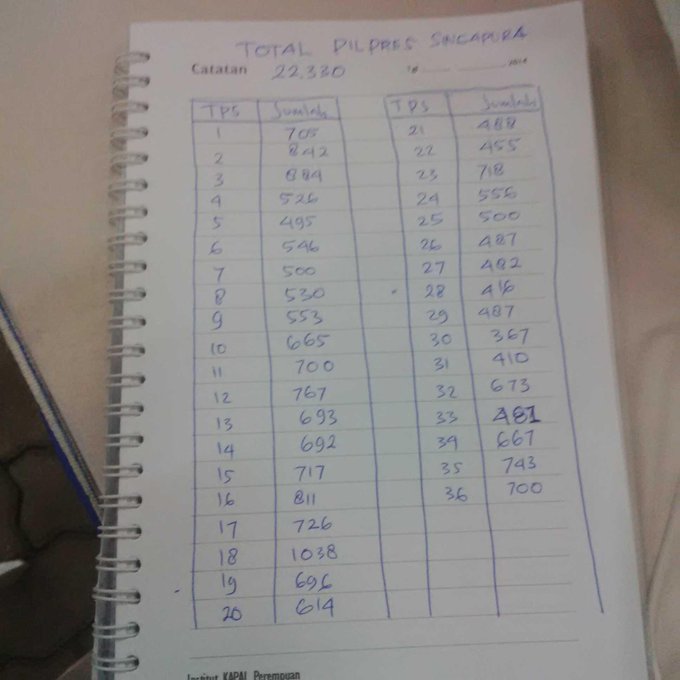 TOTAL PILPRES SINGAPURA
Catatan 22.330
TPS Jumlah
1 705
2 842
3 884
4 526
5 495
6 546
7 500
8 530
9 553
10 665
11 700
12 767
13 693
14 692
15 717
16 811
17 726
18 1038
19 696
20 614
TPS Jumlah
21 488
22 455
23 718
24 556
25 500
26 487
27 482
28 416
29 487
30 367
31 410
32 673
33 481
34 667
35 743
36 700
Institut KAPAL Perempuan